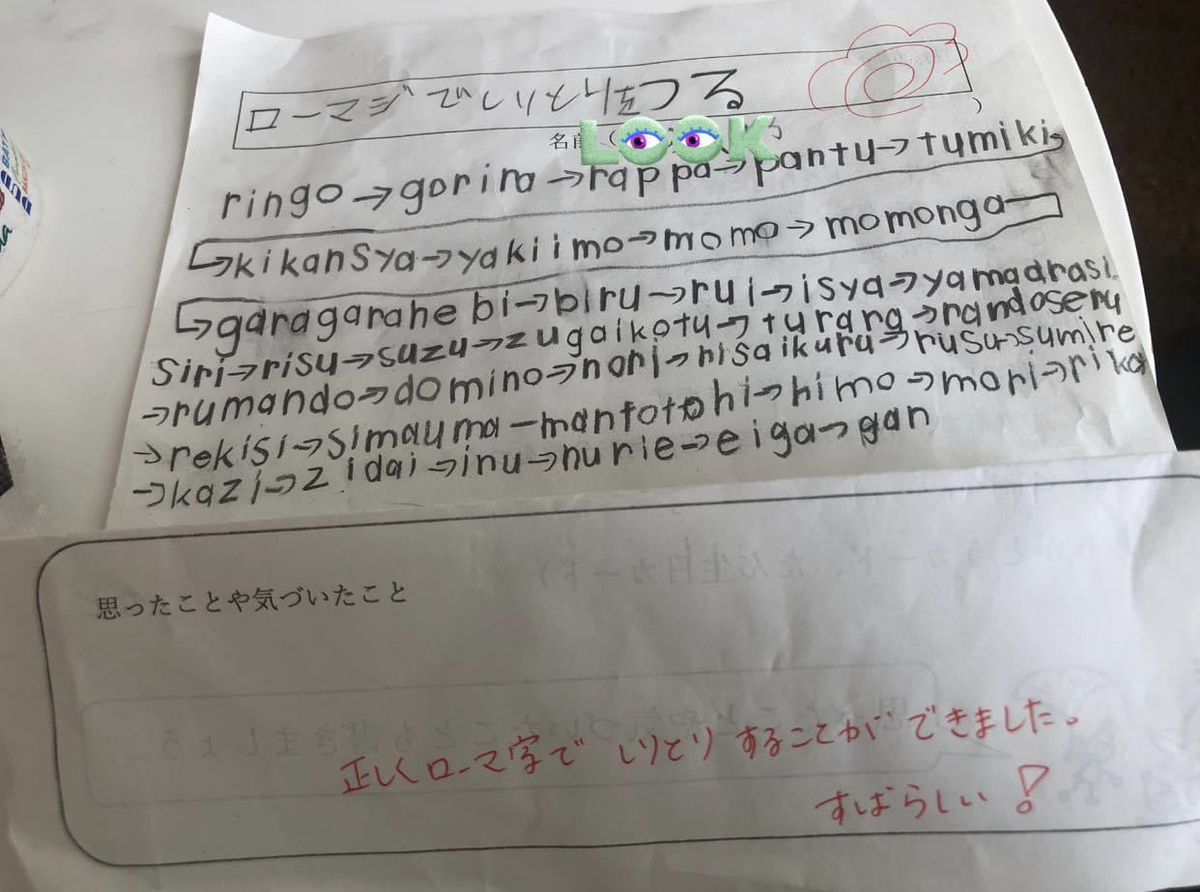 ローマジでしりとりをつる
名前（
LOOK
ringo→gorira→rappa→pantu→tumiki
→kikansya→yakiimo→momo→momonga
→garagarahebi→biru→rui→isya→yamaarasi
siri→risu→suzu→zugaikotu→turara→randoseru
→rumando→domino→nori→risaikuru→rusu→sumire
→rekisi→simauma-mantotohi→himo→mori→rika
→kazi→zidai→inu→nurie→eiga→gan
思ったことや気づいたこと
正しくローマ字でしりとりすることができました。
すばらしい!